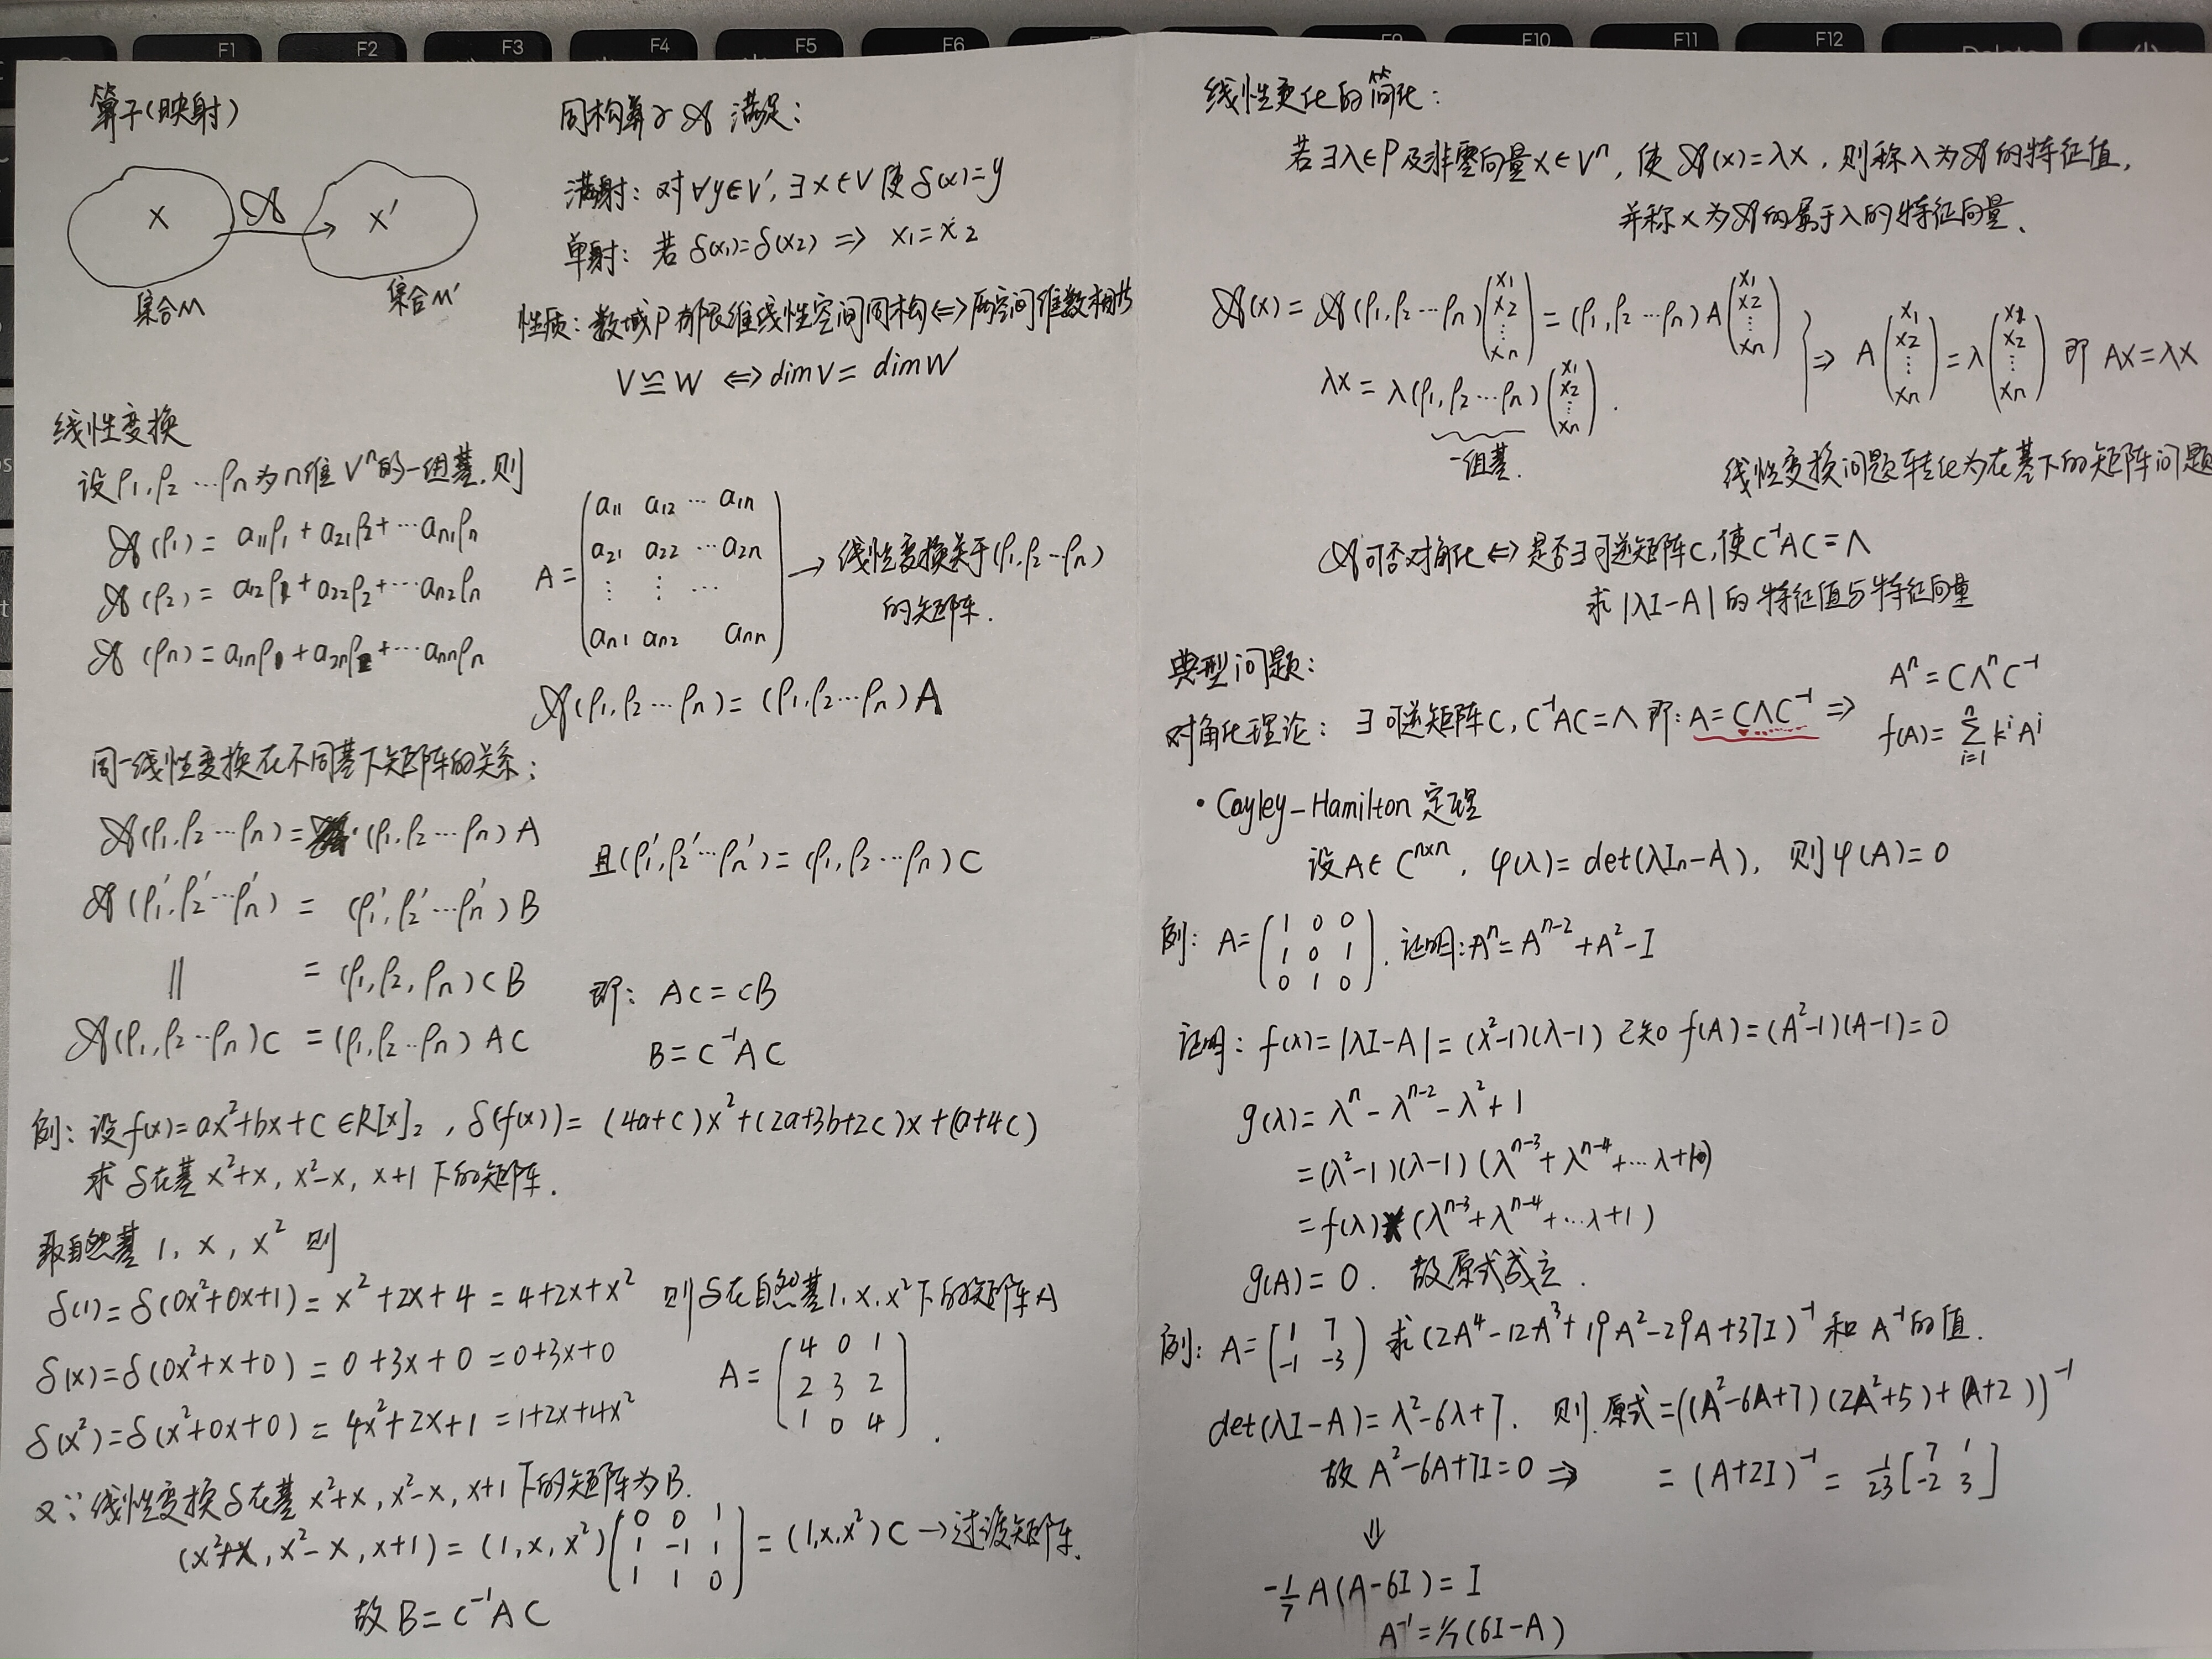 F1 F2 F3 F4 F5 F6 F9 F10 F11 F12 Delete
算子(映射)
X 𝒜 X'
集合M 集合M'
同构算子𝒜 满足:
满射: 对∀y∈V', ∃x∈V 使 δ(x)=y
单射: 若 δ(x1)=δ(x2) ⇒ x1=x2
性质: 数域P有限维线性空间同构⇔两空间维数相等
V≌W ⇔ dimV = dimW
线性变换
设ρ1,ρ2…ρn为n维Vⁿ的一组基,则
𝒜(ρ1)= a11ρ1+a21ρ2+…an1ρn
𝒜(ρ2)= a12ρ1+a22ρ2+…an2ρn
𝒜(ρn)= a1nρ1+a2nρ2+…annρn
A = (a11 a12 … a1n
a21 a22 … a2n
⋮ ⋮ …
an1 an2 ann) → 线性变换关于(ρ1,ρ2…ρn)
的矩阵.
𝒜(ρ1,ρ2…ρn)=(ρ1,ρ2…ρn)A
同一线性变换在不同基下矩阵的关系:
𝒜(ρ1,ρ2…ρn)= (ρ1,ρ2…ρn)A
且(ρ1',ρ2'…ρn')=(ρ1,ρ2…ρn)C
𝒜(ρ1',ρ2'…ρn') = (ρ1',ρ2'…ρn')B
‖ = (ρ1,ρ2,ρn)CB
𝒜(ρ1,ρ2…ρn)C = (ρ1,ρ2…ρn)AC
即: AC=CB
B=C⁻¹AC
例: 设f(x)=ax²+bx+c∈R[x]₂, δ(f(x))=(4a+c)x²+(2a+3b+2c)x+(a+4c)
求δ在基x²+x, x²-x, x+1下的矩阵.
取自然基1, x, x² 则
δ(1)=δ(0x²+0x+1)=x²+2x+4=4+2x+x²
δ(x)=δ(0x²+x+0)=0+3x+0=0+3x+0
δ(x²)=δ(x²+0x+0)=4x²+2x+1=1+2x+4x²
则δ在自然基1,x,x²下的矩阵A
A = (4 0 1
2 3 2
1 0 4).
又∵线性变换δ在基x²+x, x²-x, x+1下的矩阵为B.
(x²+x, x²-x, x+1)=(1,x,x²)(0 0 1
1 -1 1
1 1 0) = (1,x,x²)C →过渡矩阵.
故B=C⁻¹AC
线性变化的简化:
若∃λ∈P及非零向量x∈Vⁿ, 使𝒜(x)=λx, 则称λ为𝒜的特征值,
并称x为𝒜的属于λ的特征向量.
𝒜(x)=𝒜(ρ1,ρ2…ρn)(x1 x2 ⋮ xn)=(ρ1,ρ2…ρn)A(x1 x2 ⋮ xn)
λx=λ(ρ1,ρ2…ρn)(x1 x2 ⋮ xn).
一组基.
⇒ A(x1 x2 ⋮ xn)=λ(x1 x2 ⋮ xn) 即 AX=λX
线性变换问题转化为在基下的矩阵问题
𝒜可否对角化⇔是否∃可逆矩阵C,使C⁻¹AC=Λ
求|λI-A|的特征值与特征向量
典型问题:
对角化理论: ∃可逆矩阵C, C⁻¹AC=Λ 即: A=CΛC⁻¹ ⇒ Aⁿ=CΛⁿC⁻¹
f(A)=∑ⁿᵢ₌₁ kⁱAʲ
• Cayley-Hamilton定理
设A∈Cⁿˣⁿ, φ(λ)=det(λIn-A), 则φ(A)=0
例: A=(1 0 0
1 0 1
0 1 0). 证明:Aⁿ=Aⁿ⁻²+A²-I
证明: f(x)=|λI-A|=(x²-1)(λ-1) 已知f(A)=(A²-1)(A-1)=0
g(λ)=λⁿ-λⁿ⁻²-λ²+1
=(λ²-1)(λ-1)(λⁿ⁻³+λⁿ⁻⁴+…λ+1)
=f(λ)(λⁿ⁻³+λⁿ⁻⁴+…λ+1)
g(A)=0. 故原式成立.
例: A=(1 7
-1 -3) 求(2A⁴-12A³+19A²-29A+37I)⁻¹和A⁻¹的值.
det(λI-A)=λ²-6λ+7. 则 原式=((A²-6A+7)(2A²+5)+(A+2))⁻¹
故A²-6A+7I=0 ⇒ =(A+2I)⁻¹=1/23[7 1
-2 3]
⇓
-1/7 A(A-6I)=I
A⁻¹=1/7(6I-A)